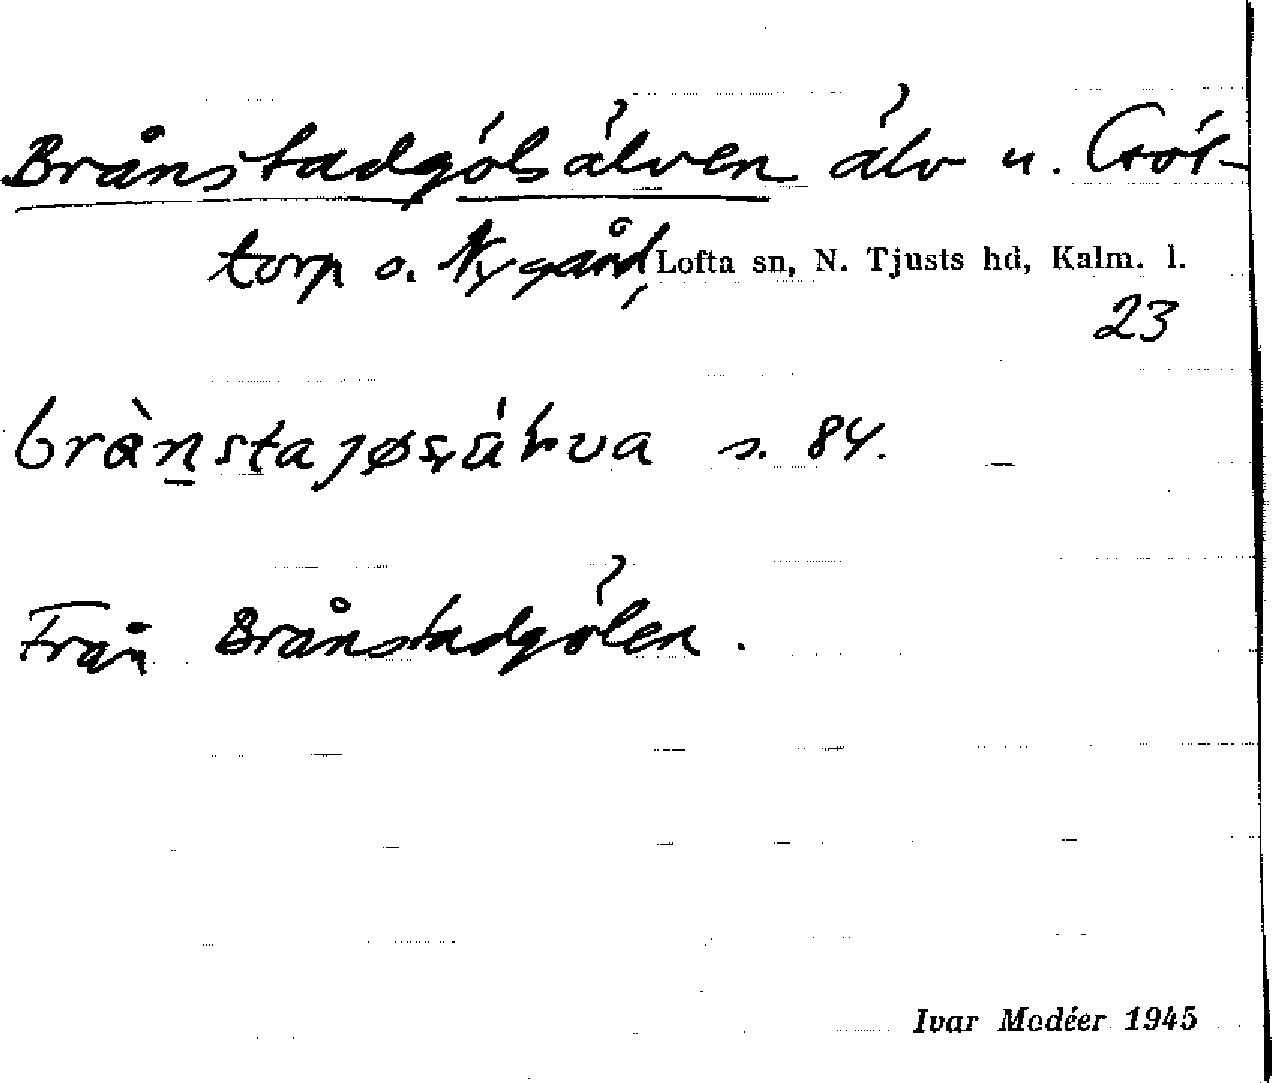 Brånstadgölsälven älv u. Göt-
torp o. Nygård, Lofta sn, N. Tjusts hd, Kalm. l.
23
s. 84.
Från Brånstadgölen.
Ivar Modéer 1945